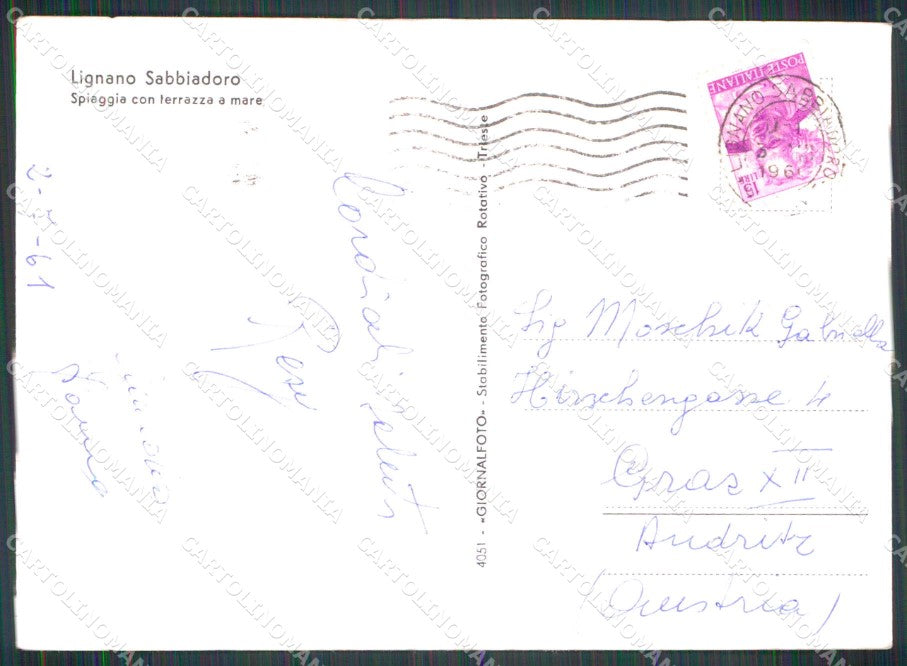 Lignano Sabbiadoro
Spiaggia con terrazza a mare
POSTE ITALIANE
LIRE 15
LIGNANO SABBIADORO
196
Cordiali saluti
Resy
4051 - «GIORNALFOTO» - Stabilimento Fotografico Rotativo - Trieste
Sig Moschik Gabriella
Hirschengasse 4
Graz XII
Andritz
(Austria)
CARTOLINOMANIA